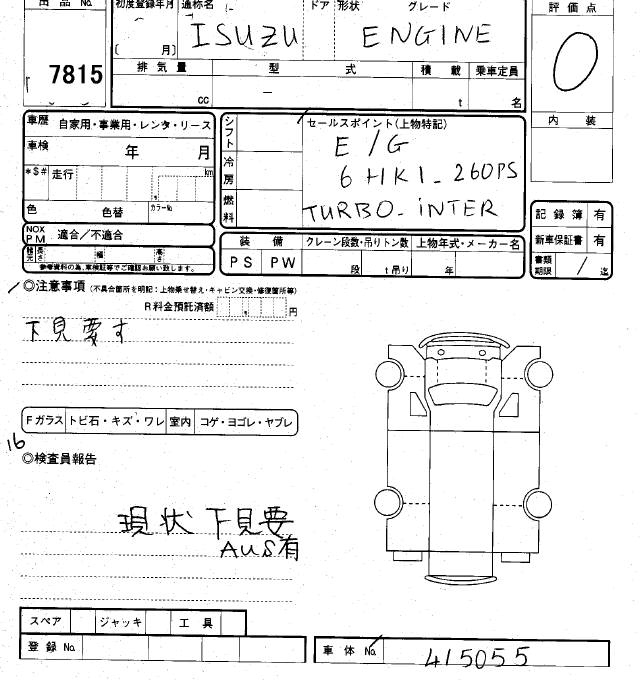 出品 No. 初度登録年月 通称名 ドア 形状 グレード 評価点
7815 〔 月〕 ISUZU ENGINE 0
排気量 型式 積載 乗車定員
cc － t 名
内装
車歴 自家用・事業用・レンタ・リース
シフト
セールスポイント(上物特記)
車検 年 月
E/G
*S# 走行 km
冷房
6HK1-260PS
色 色替 カラーNo.
燃料
TURBO-iNTER
記録簿 有
NOX PM 適合／不適合
新車保証書 有
装備 クレーン段数・吊りトン数 上物年式・メーカー名
書類期限 / 迄
諸元 長さ 幅 高さ
PS PW 段 t吊り 年
参考資料の為、車検証等でご確認お願い致します。
◎注意事項 (不具合箇所を明記：上物乗せ替え・キャビン交換・修復箇所等)
R料金預託済額 , 円
下見要す
Fガラス トビ石・キズ・ワレ 室内 コゲ・ヨゴレ・ヤブレ
16
◎検査員報告
現状下見要
AUS有
スペア ジャッキ 工具
登録 No. 車体 No. 415055